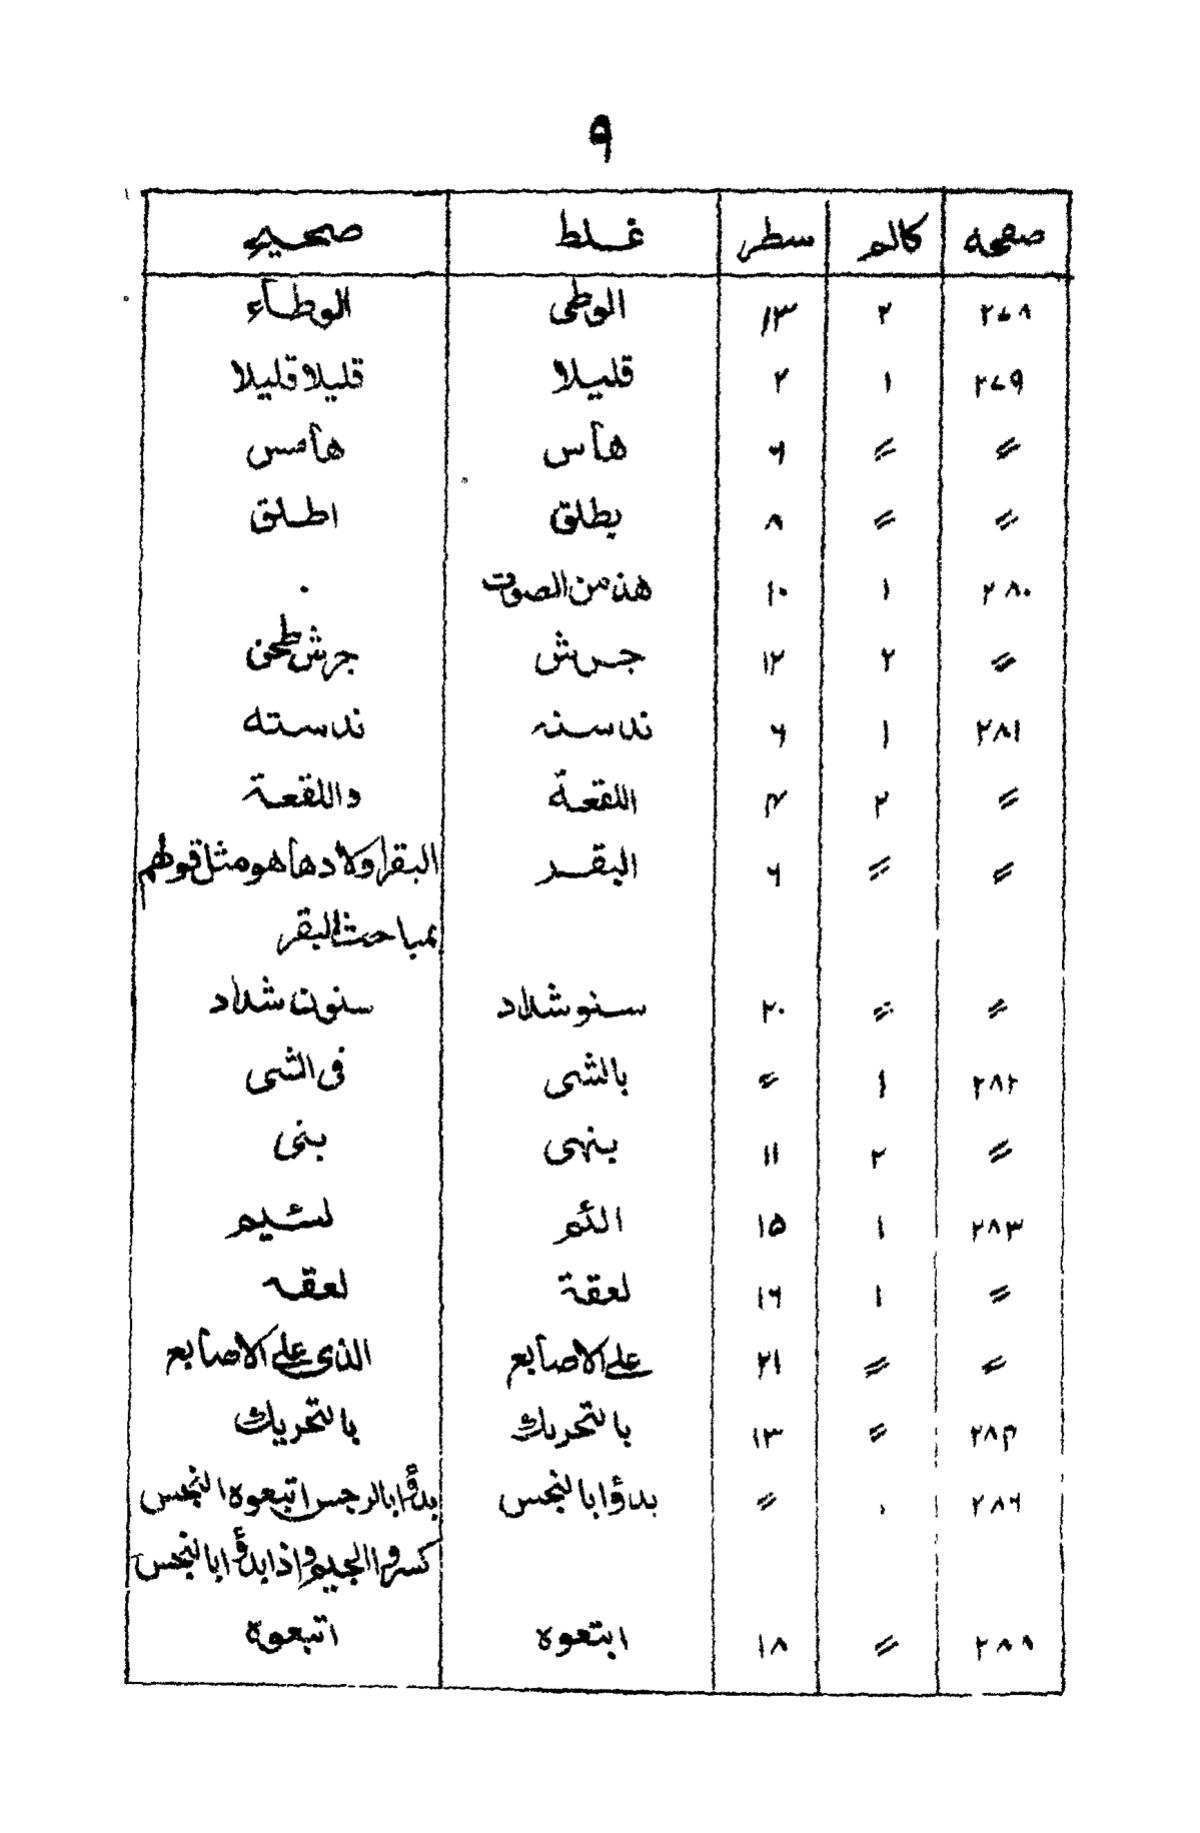 ۹
صفحه کالم سطر غلط صحیح
۲۷۸ ۲ ۱۳ الوطی الوطاء
۲۷۹ ۱ ۲ قلیلا قلیلا قلیلا
〃 〃 ۶ هاس هامس
〃 〃 ۸ یطلق اطلق
۲۸۰ ۱ ۱۰ هذ من الصوت ۰
〃 ۲ ۱۲ جرش جرش طحن
۲۸۱ ۱ ۶ ندسنه ندسته
〃 ۲ ۴ اللقعة واللقعة
〃 〃 ۶ البقر البقر اولادها هو مثل قولهم
بمباحث البقر
〃 〃 ۲۰ سنو شداد سنون شداد
۲۸۲ ۱ 〃 بالشی فی الشی
〃 ۲ ۱۱ ینهی بنی
۲۸۳ ۱ ۱۵ الئم لئیم
〃 ۱ ۱۶ لعقة لعقه
〃 〃 ۲۱ علی الاصابع الذی علی الاصابع
۲۸۴ 〃 ۱۳ بالتحریك بالتحریك
۲۸۶ ۰ 〃 بدؤا بالنجس بدؤا بالرجس اتبعوه النجس
کسروا الجیم واذا بدؤا بالنجس
۲۸۸ 〃 ۱۸ ابتعوه اتبعوه